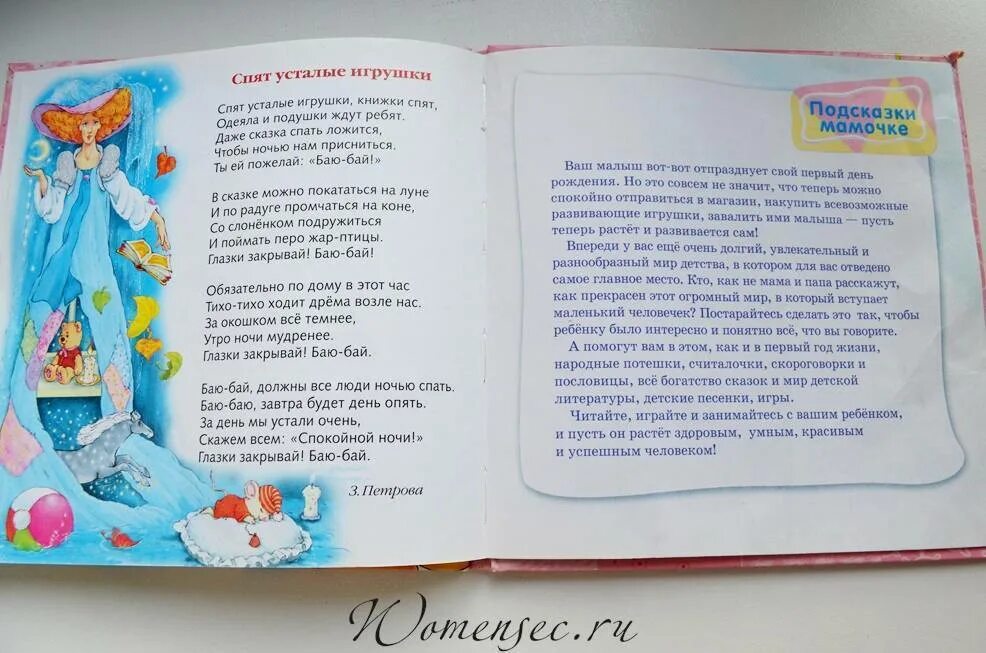 Спят усталые игрушки
Спят усталые игрушки, книжки спят,
Одеяла и подушки ждут ребят.
Даже сказка спать ложится,
Чтобы ночью нам присниться.
Ты ей пожелай: «Баю-бай!»
В сказке можно покататься на луне
И по радуге промчаться на коне,
Со слонёнком подружиться
И поймать перо жар-птицы.
Глазки закрывай! Баю-бай!
Обязательно по дому в этот час
Тихо-тихо ходит дрёма возле нас.
За окошком всё темнее,
Утро ночи мудренее.
Глазки закрывай! Баю-бай.
Баю-бай, должны все люди ночью спать.
Баю-баю, завтра будет день опять.
За день мы устали очень,
Скажем всем: «Спокойной ночи!»
Глазки закрывай! Баю-бай.
З. Петрова
Подсказки
мамочке
Ваш малыш вот-вот отпразднует свой первый день
рождения. Но это совсем не значит, что теперь можно
спокойно отправиться в магазин, накупить всевозможные
развивающие игрушки, завалить ими малыша — пусть
теперь растёт и развивается сам!
Впереди у вас ещё очень долгий, увлекательный и
разнообразный мир детства, в котором для вас отведено
самое главное место. Кто, как не мама и папа расскажут,
как прекрасен этот огромный мир, в который вступает
маленький человечек? Постарайтесь сделать это так, чтобы
ребёнку было интересно и понятно всё, что вы говорите.
А помогут вам в этом, как и в первый год жизни,
народные потешки, считалочки, скороговорки и
пословицы, всё богатство сказок и мир детской
литературы, детские песенки, игры.
Читайте, играйте и занимайтесь с вашим ребёнком,
и пусть он растёт здоровым, умным, красивым
и успешным человеком!
Womensec.ru